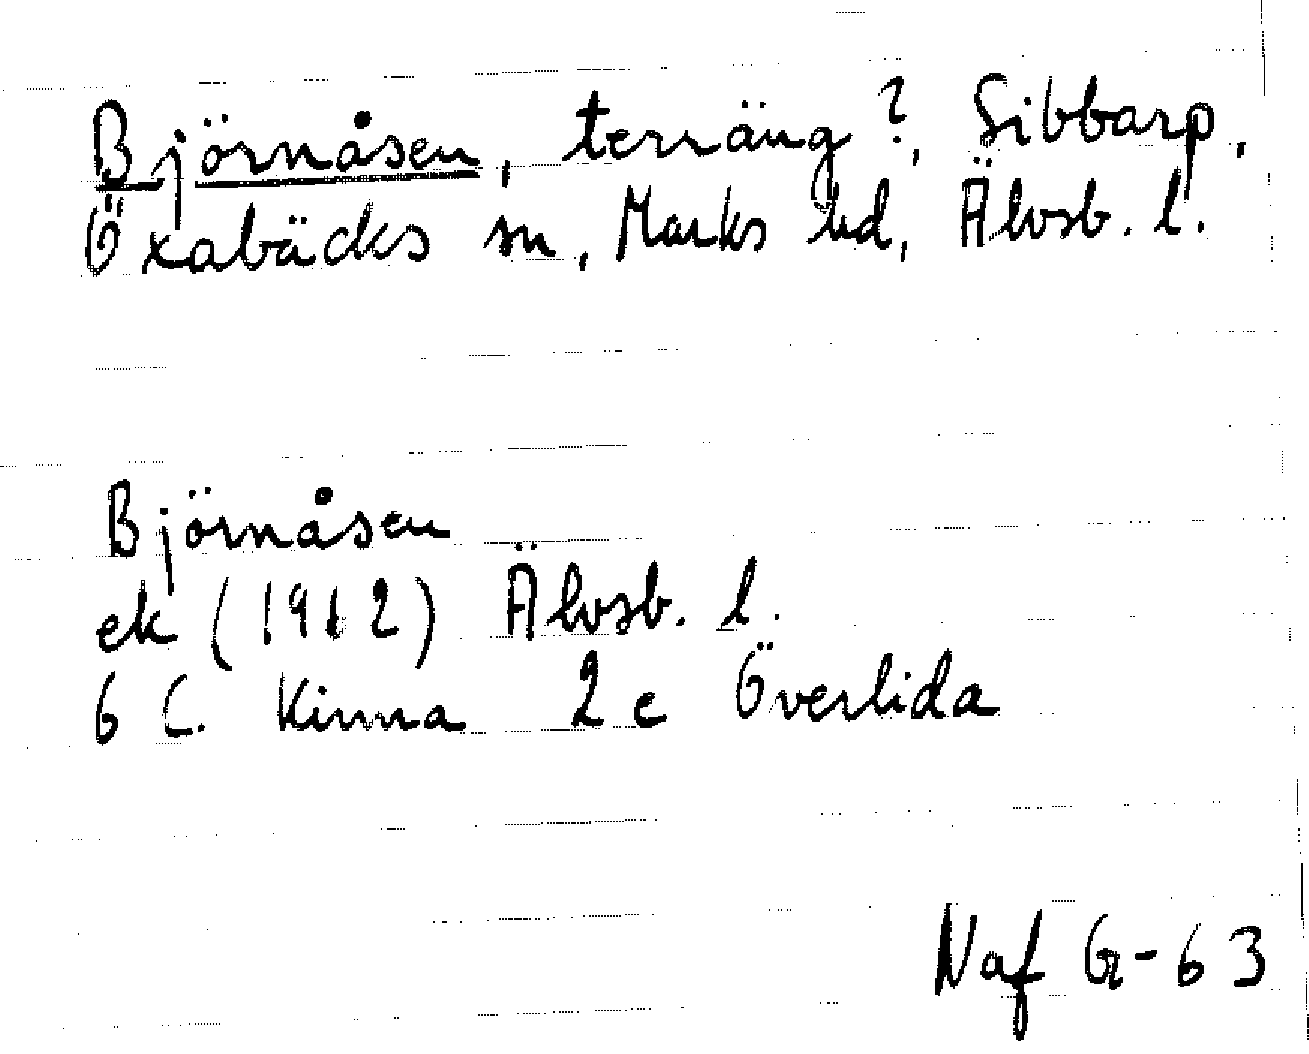 Björnåsen, terräng?, Sibbarp,
Öxabäcks sn, Marks hd, Älvsb. l.
Björnåsen
ek (1912) Älvsb. l.
6 C. Kinna 2 c Överlida
Naf G-63